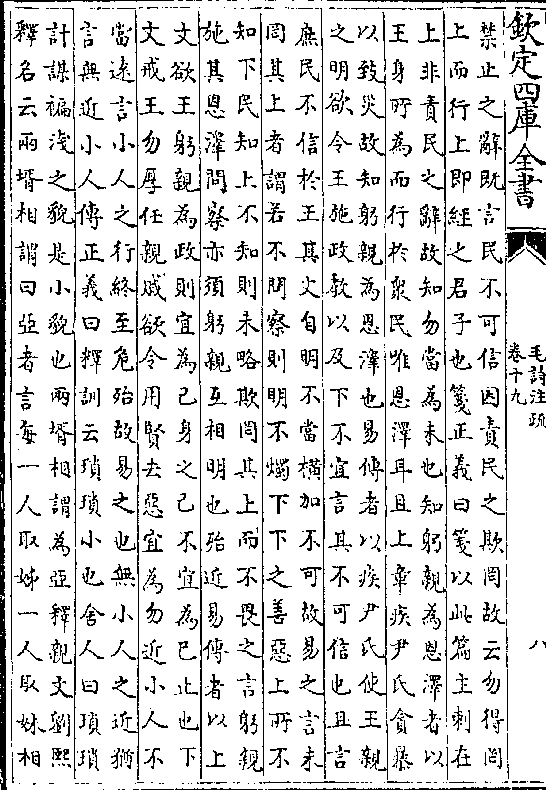 欽定四庫全書
毛詩注疏
卷十九
八
禁止之辭既言民不可信因責民之欺罔故云勿得罔
上而行上即經之君子也箋正義曰箋以此篇主刺在
上非責民之辭故知勿當為未也知躬親為恩澤者以
王身所為而行於衆民唯恩澤耳且上章疾尹氏貪暴
以致災故知躬親為恩澤也易傳者以疾尹氏使王親
之明欲令王施政教以及下不宜言其不可信也且言
庶民不信於王其文自明不當横加不可故易之言未
罔其上者謂若不問察則明不燭下下之善惡上所不
知下民知上不知則未略欺罔其上而不畏之言躬親
施其恩澤問察亦須躬親互相明也殆近易傳者以上
文欲王躬親為政則宜為己身之己不宜為已止也下
文戒王勿厚任親戚欲令用賢去惡宜為勿近小人不
當遠言小人之行終至危殆故易之也無小人之近猶
言無近小人傳正義曰釋訓云瑣瑣小也舍人曰瑣瑣
計謀褊淺之貌是小貌也兩壻相謂為亞釋親文劉熙
釋名云兩壻相謂曰亞者言每一人取姊一人取妹相